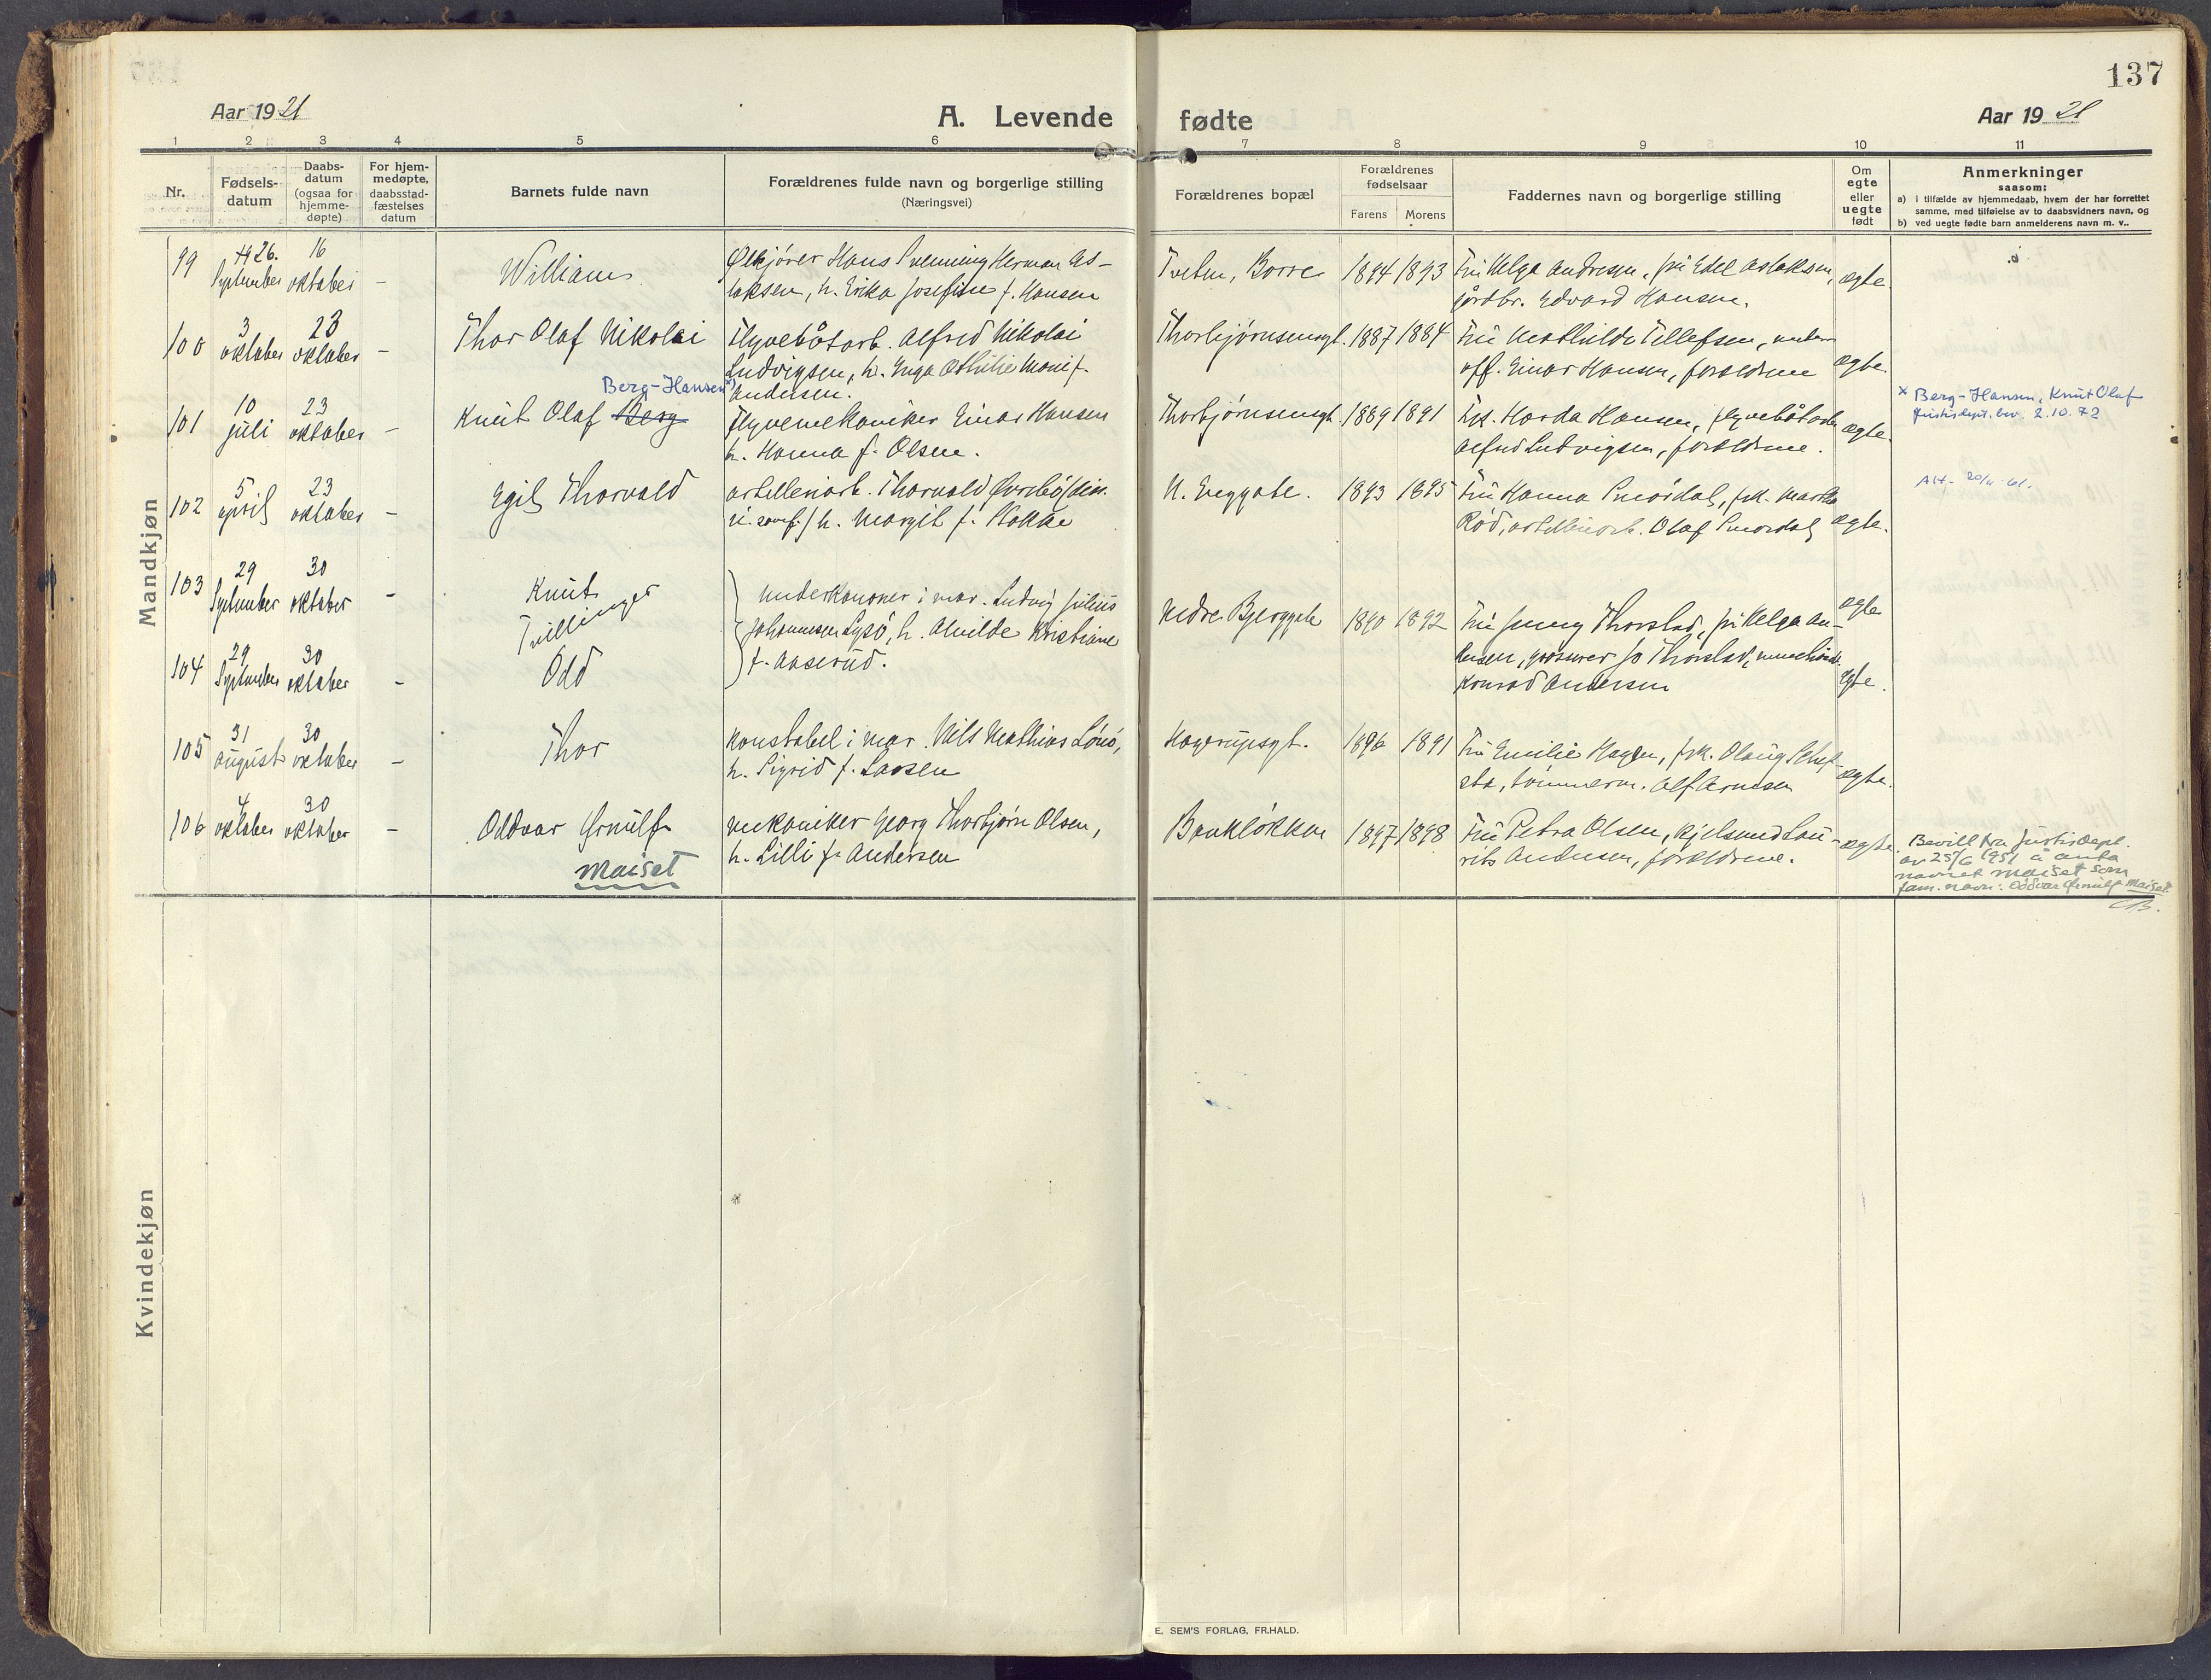 137
Aar 1921
A. Levende fødte
Aar 1921
1 2 3 4 5 6 7 8 9 10 11
Nr.
Fødsels-
datum
Daabs-
datum
(ogsaa for
hjemme-
døpte)
For hjem-
medøpte,
daabsstad-
fæstelses
datum
Barnets fulde navn
Forældrenes fulde navn og borgerlige stilling
(Næringsvei)
Forældrenes bopæl
Forældrenes
fødselsaar
Farens Morens
Faddernes navn og borgerlige stilling
Om
egte
eller
uegte
født
Anmerkninger
saasom:
a) i tilfælde av hjemmedaab, hvem der har forrettet
samme, med tilføielse av to daabsvidners navn, og
b) ved uegte fødte barn anmelderens navn m. v..
Mandkjøn
99
26.
September
16
oktober
-
William
Ølkjører Hans Svenning Herman As-
laksen, h. Erika Josefine f. Hansen
Tveten, Borre
1894 1893
Fru Helga Andresen, fru Edel Aslaksen,
jordbr. Edvard Hansen.
ægte.
100
3
oktober
23
oktober
-
Thor Olaf Nikolai
Flyvebåtarb. Alfred Nikolai
Ludvigsen, h. Inga Othilie Marie f.
Andersen.
Thorbjørnsensgt.
1887 1884
Fru Mathilde Tellefsen, under-
off. Einar Hansen, forældrene
ægte.
101
10
juli
23
oktober
-
Berg-Hansen x)
Knut Olaf Berg
Flyvemekaniker Einar Hansen
h. Hanna f. Olsen.
Thorbjørnsensgt.
1889 1891
Frk. Harda Hansen, flyvebåtarb.
Alfred Ludvigsen, forældrene.
ægte.
x Berg-Hansen, Knut Olaf
Justisdept. bev. 2.10.72
102
5
april
23
oktober
-
Egil Thorvald
artelleriarb. Thorvald Øvrebø
h. Margit f. Stokke
N. Enggate.
1893 1895
Fru Hanna Smørdal, frk. Martha
Rød, artelleriarb. Olaf Smørdal
ægte.
Att. 20/11 61.
103
29
September
30
oktober
-
Knut
Tvillinger
underkanoner i mar. Ludvig Julius
Johannesen Lysø, h. Alvilde Kristiane
f. Aaserud.
Nedre Bjerggate
1890 1892
Fru Jenny Thorstad, fru Helga An-
dersen, Jo Thorstad,
Konrad Andersen
ægte
104
29
September
30
oktober
-
Odd
ægte.
105
31
august
30
oktober
-
Thor
Konstabel i mar. Nils Mathias Lønø,
h. Sigrid f. Larsen
Hagerupsgt.
1896 1891
Fru Emilie Hagen, frk. Olaug
tømmerm. Alf Arnesen
ægte.
106
4
oktober
30
oktober
-
Oddvar Ørnulf
Maiset
mekaniker Georg Thorbjørn Olsen,
h. Lilli f. Andersen
Bankløkken
1897 1898
Fru Petra Olsen, kjelsmed Lau-
rits Andersen, forældrene.
ægte.
Bevill fra Justisdept.
av 25/6 1951 å anta
navnet Maiset som
fam. navn: Oddvar Ørnulf Maiset.
Kvindekjøn
E. SEM'S FORLAG, FR.HALD.